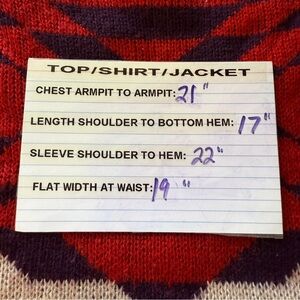 TOP/SHIRT/JACKET
CHEST ARMPIT TO ARMPIT: 21"
LENGTH SHOULDER TO BOTTOM HEM: 17"
SLEEVE SHOULDER TO HEM: 22"
FLAT WIDTH AT WAIST: 19"